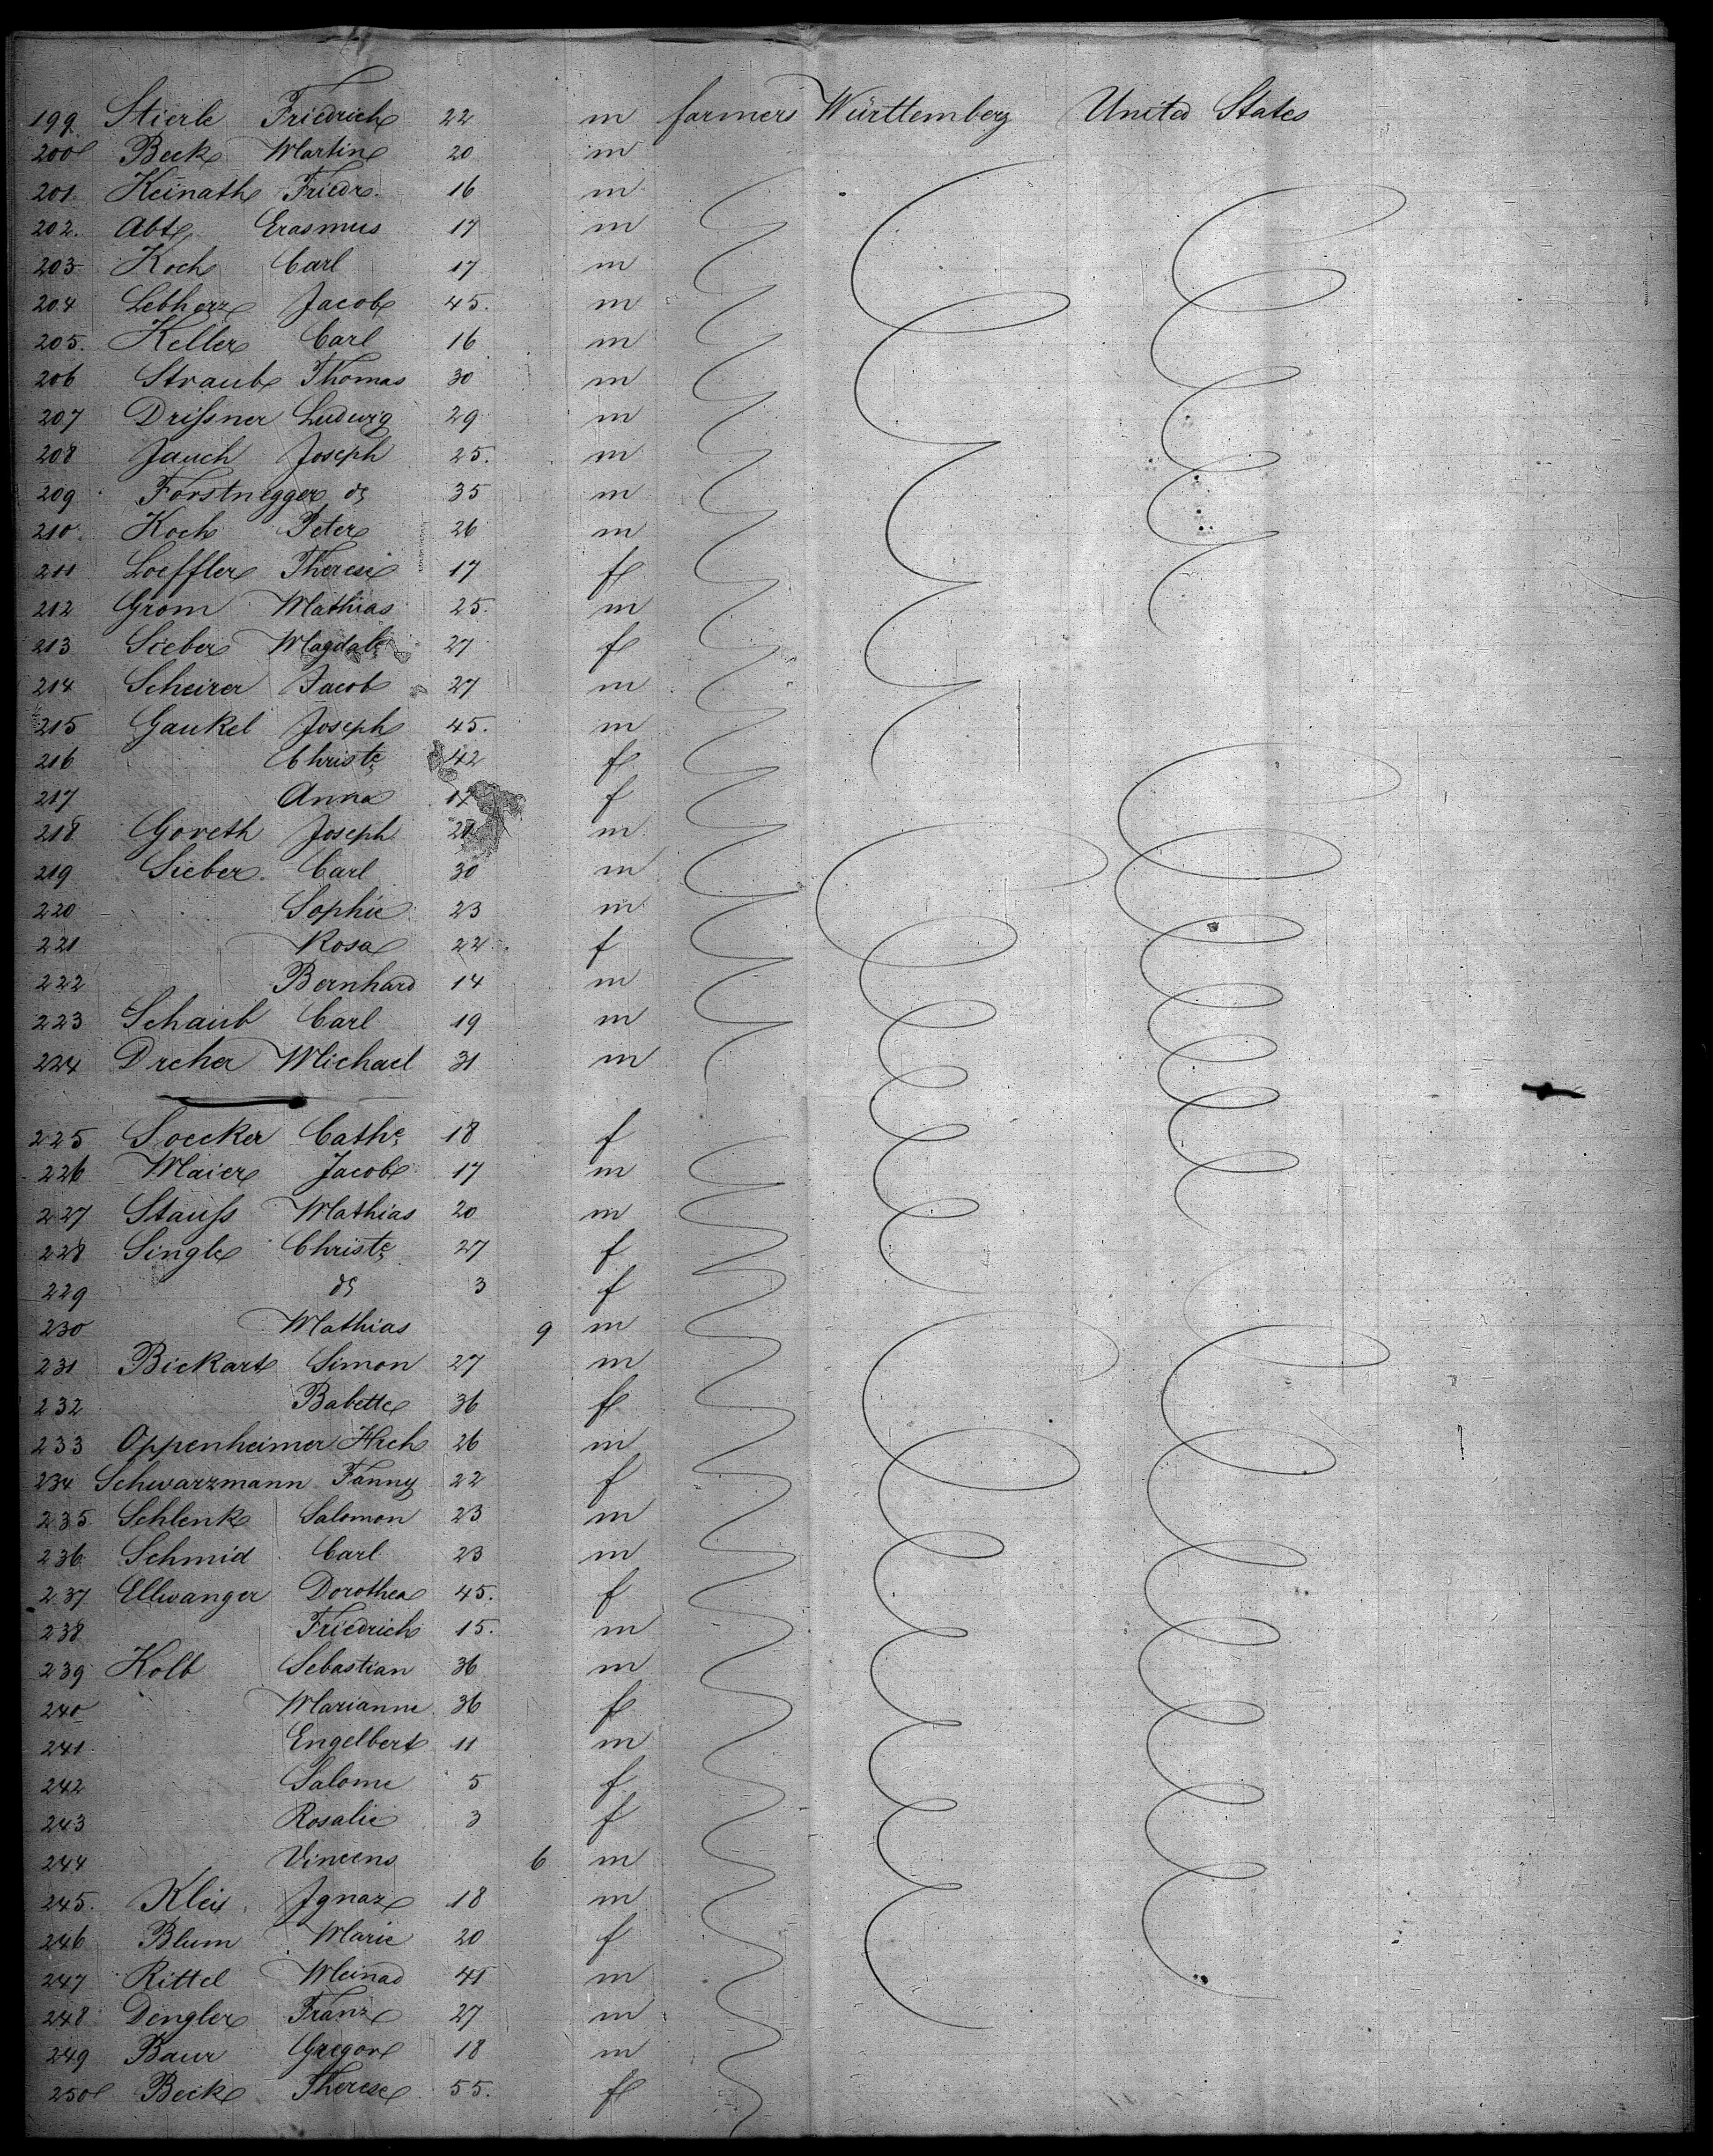 199. Stierle Friedrich 22 m farmers Württemberg United States
200 Beck Martin 20 m
201. Keinath Friedr. 16 m
202. Abt Erasmus 17 m
203 Koch Carl 17 m
204 Lebherz Jacob 45. m
205. Keller Carl 16 m
206 Straub Thomas 30 m
207 Drißner Ludwig 29 m
208 Jauch Joseph 25. m
209 Forstnegger do 35 m
210. Koch Peter 26 m
211 Loeffler Therese 17 f
212 Grom Mathias 25. m
213 Sieber Magdale 27 f
214 Scheirer Jacob 27 m
215 Gaukel Joseph 45. m
216 Christe 42 f
217 Anna f
218 Goreth Joseph 21 m
219 Sieber Carl 30 m
220 Sophie 23 m
221 Rosa 22 f
222 Bernhard 14 m
223 Schaub Carl 19 m
224 Dreher Michael 31 m
225 Soecker Cathe 18 f
226 Maier Jacob 17 m
227 Stauß Mathias 20 m
228 Single Christe 27 f
229 do 3 f
230 Mathias 9 m
231 Bickart Simon 27 m
232 Babette 36 f
233 Oppenheimer Hrch 26 m
234 Schwarzmann Fanny 22 f
235. Schlenk Salomon 23 m
236. Schmid Carl 23 m
237 Ellwanger Dorothea 45. f
238 Friedrich 15. m
239 Kolb Sebastian 36 m
240 Marianne 36 f
241 Engelbert 11 m
242 Salome 5 f
243 Rosalie 3 f
244 Vincens 6 m
245. Kleis Ignaz 18 m
246 Blum Marie 20 f
247 Rittel Meinad 41 m
248 Dengler Franz 27 m
249 Baur Gregor 18 m
250 Beck Therese 55. f